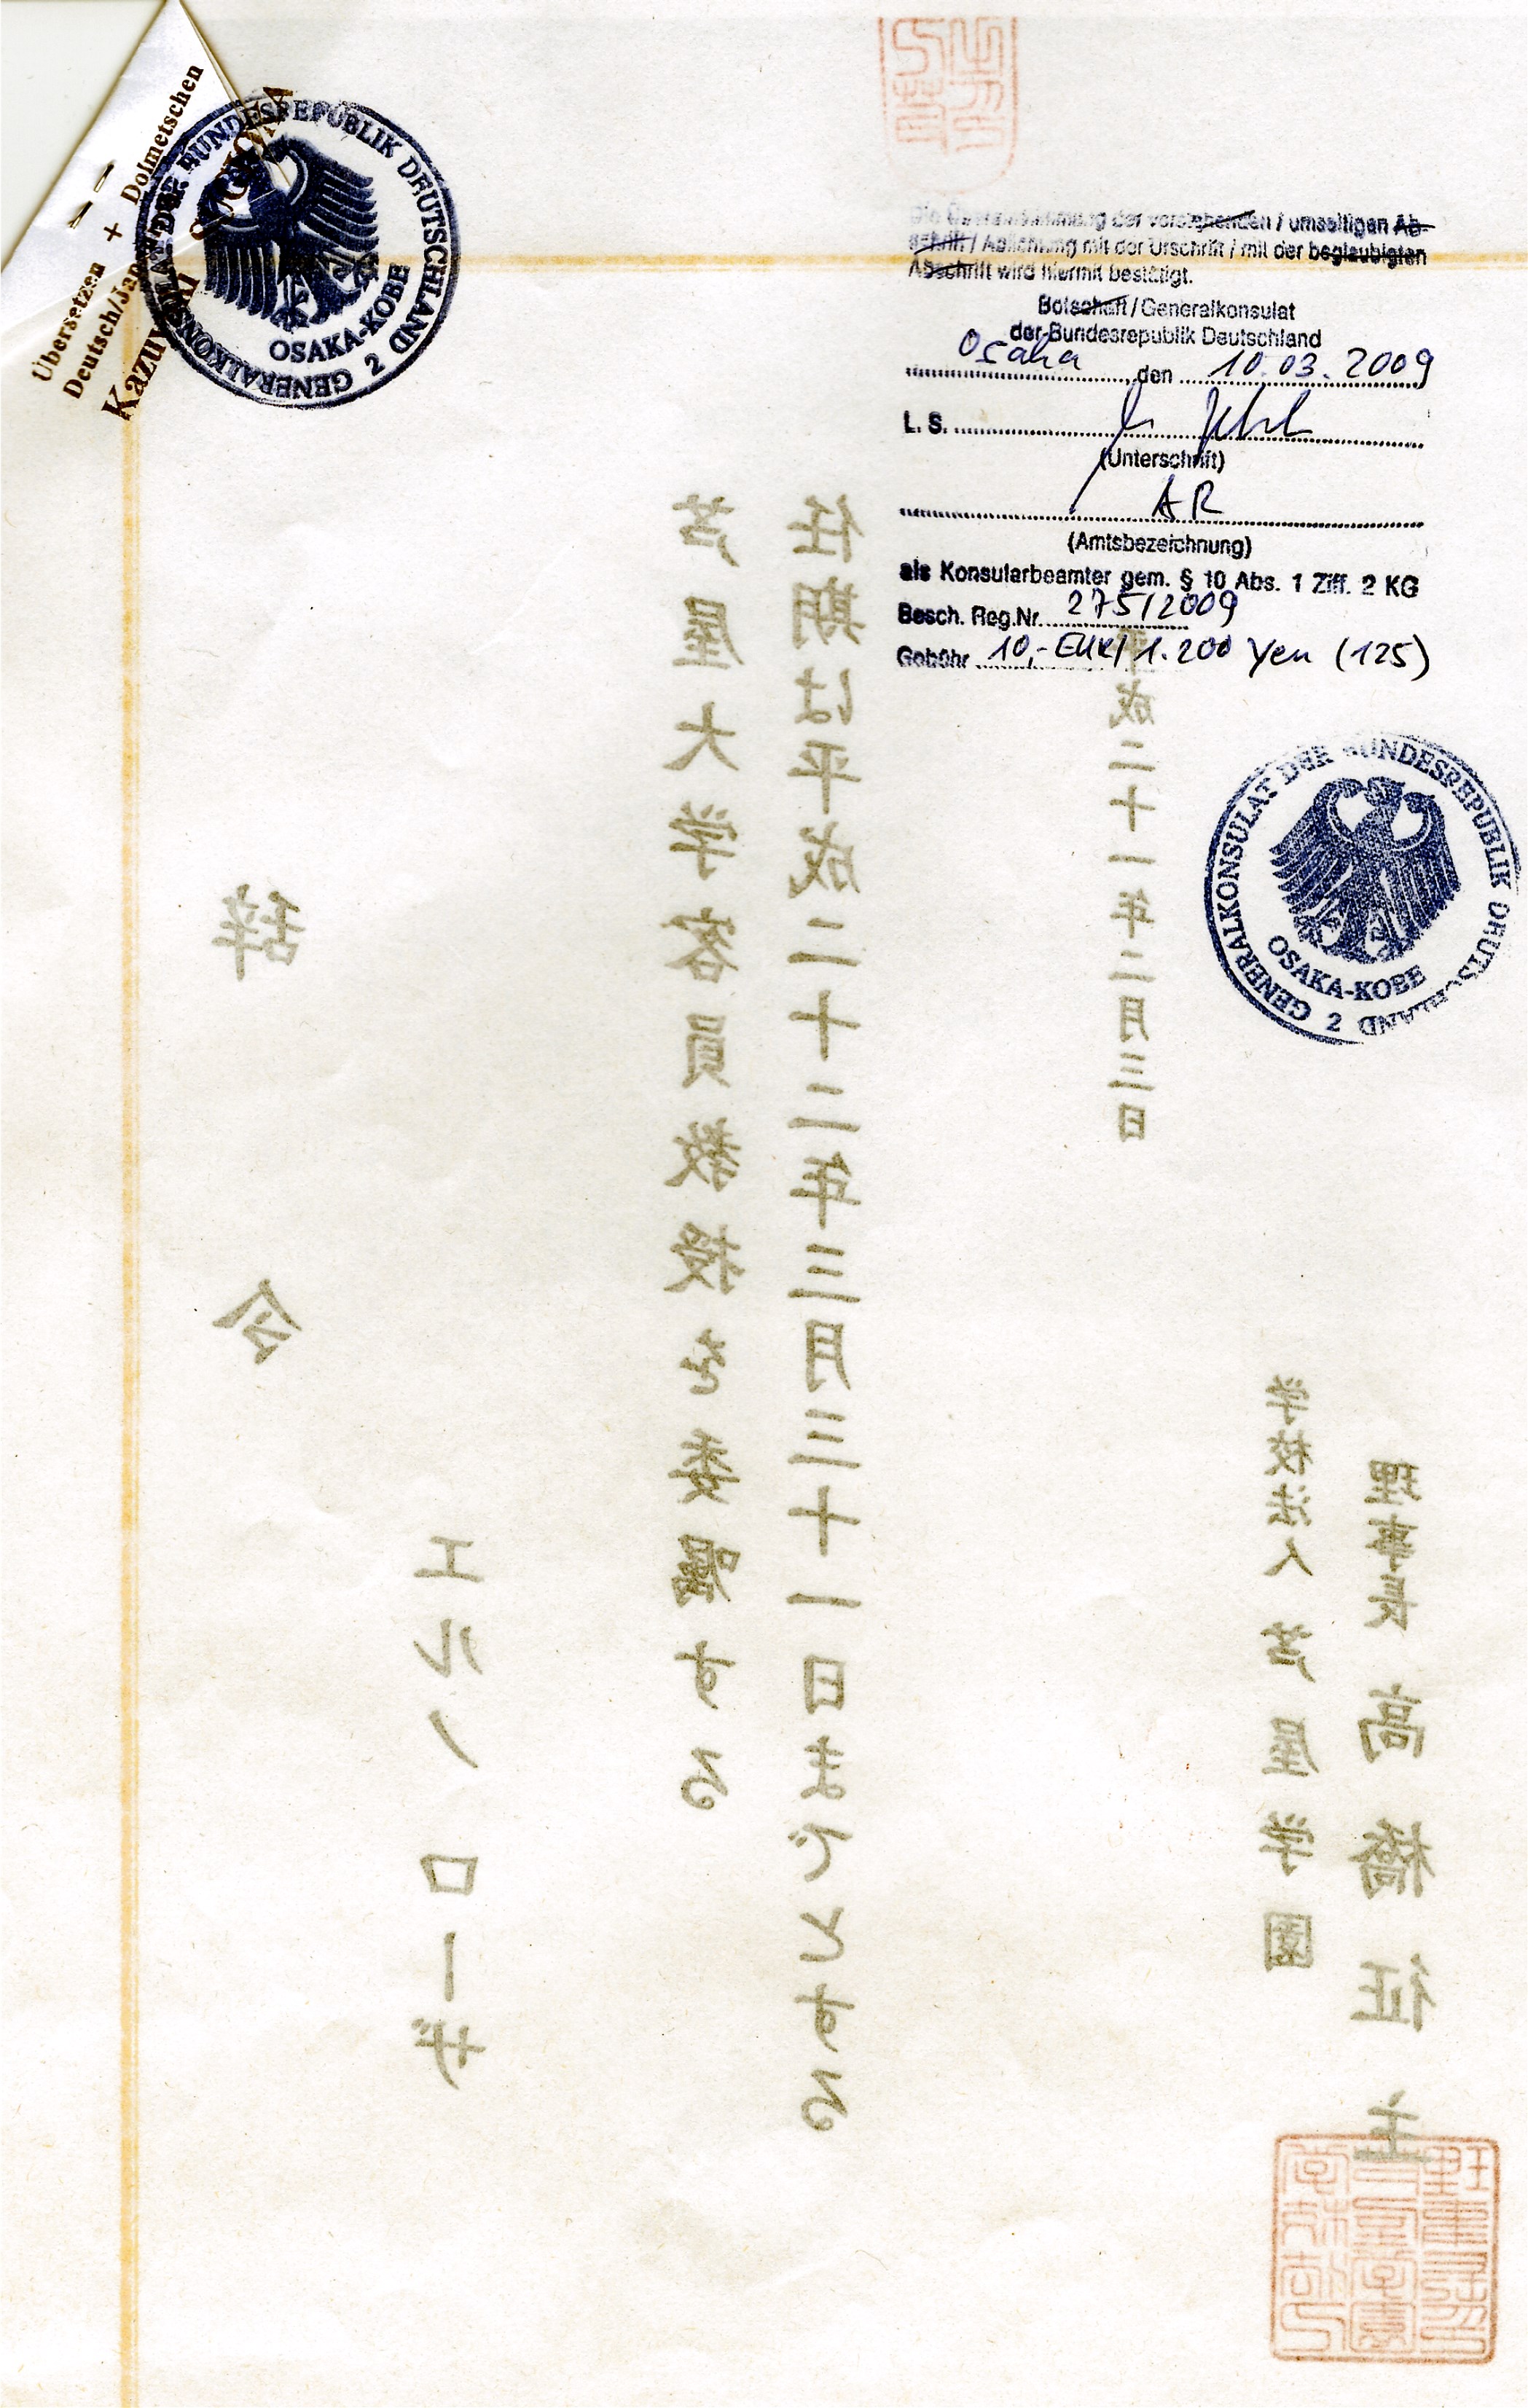 Übersetzen + Dolmetschen
Deutsch/Jap
GENERALKONSULAT DER BUNDESREPUBLIK DEUTSCHLAND 2
OSAKA-KOBE
der vorstehenden / umseitigen Ab-
schrift / Ablichtung mit der Urschrift / mit der beglaubigten
Abschrift wird hiermit bestätigt.
Botschaft / Generalkonsulat
der Bundesrepublik Deutschland
Osaka, den 10.03.2009
L. S.
(Unterschrift)
AR
(Amtsbezeichnung)
als Konsularbeamter gem. § 10 Abs. 1 Ziff. 2 KG
Besch. Reg.Nr. 275/2009
Gebühr 10,- EUR/ 1.200 Yen (125)
GENERALKONSULAT DER BUNDESREPUBLIK DEUTSCHLAND 2
OSAKA-KOBE
辞令
エルノ ローザ
芦屋大学客員教授を委嘱する
任期は平成二十二年三月三十一日までとする
平成二十一年二月三日
学校法人 芦屋学園
理事長 高橋征主